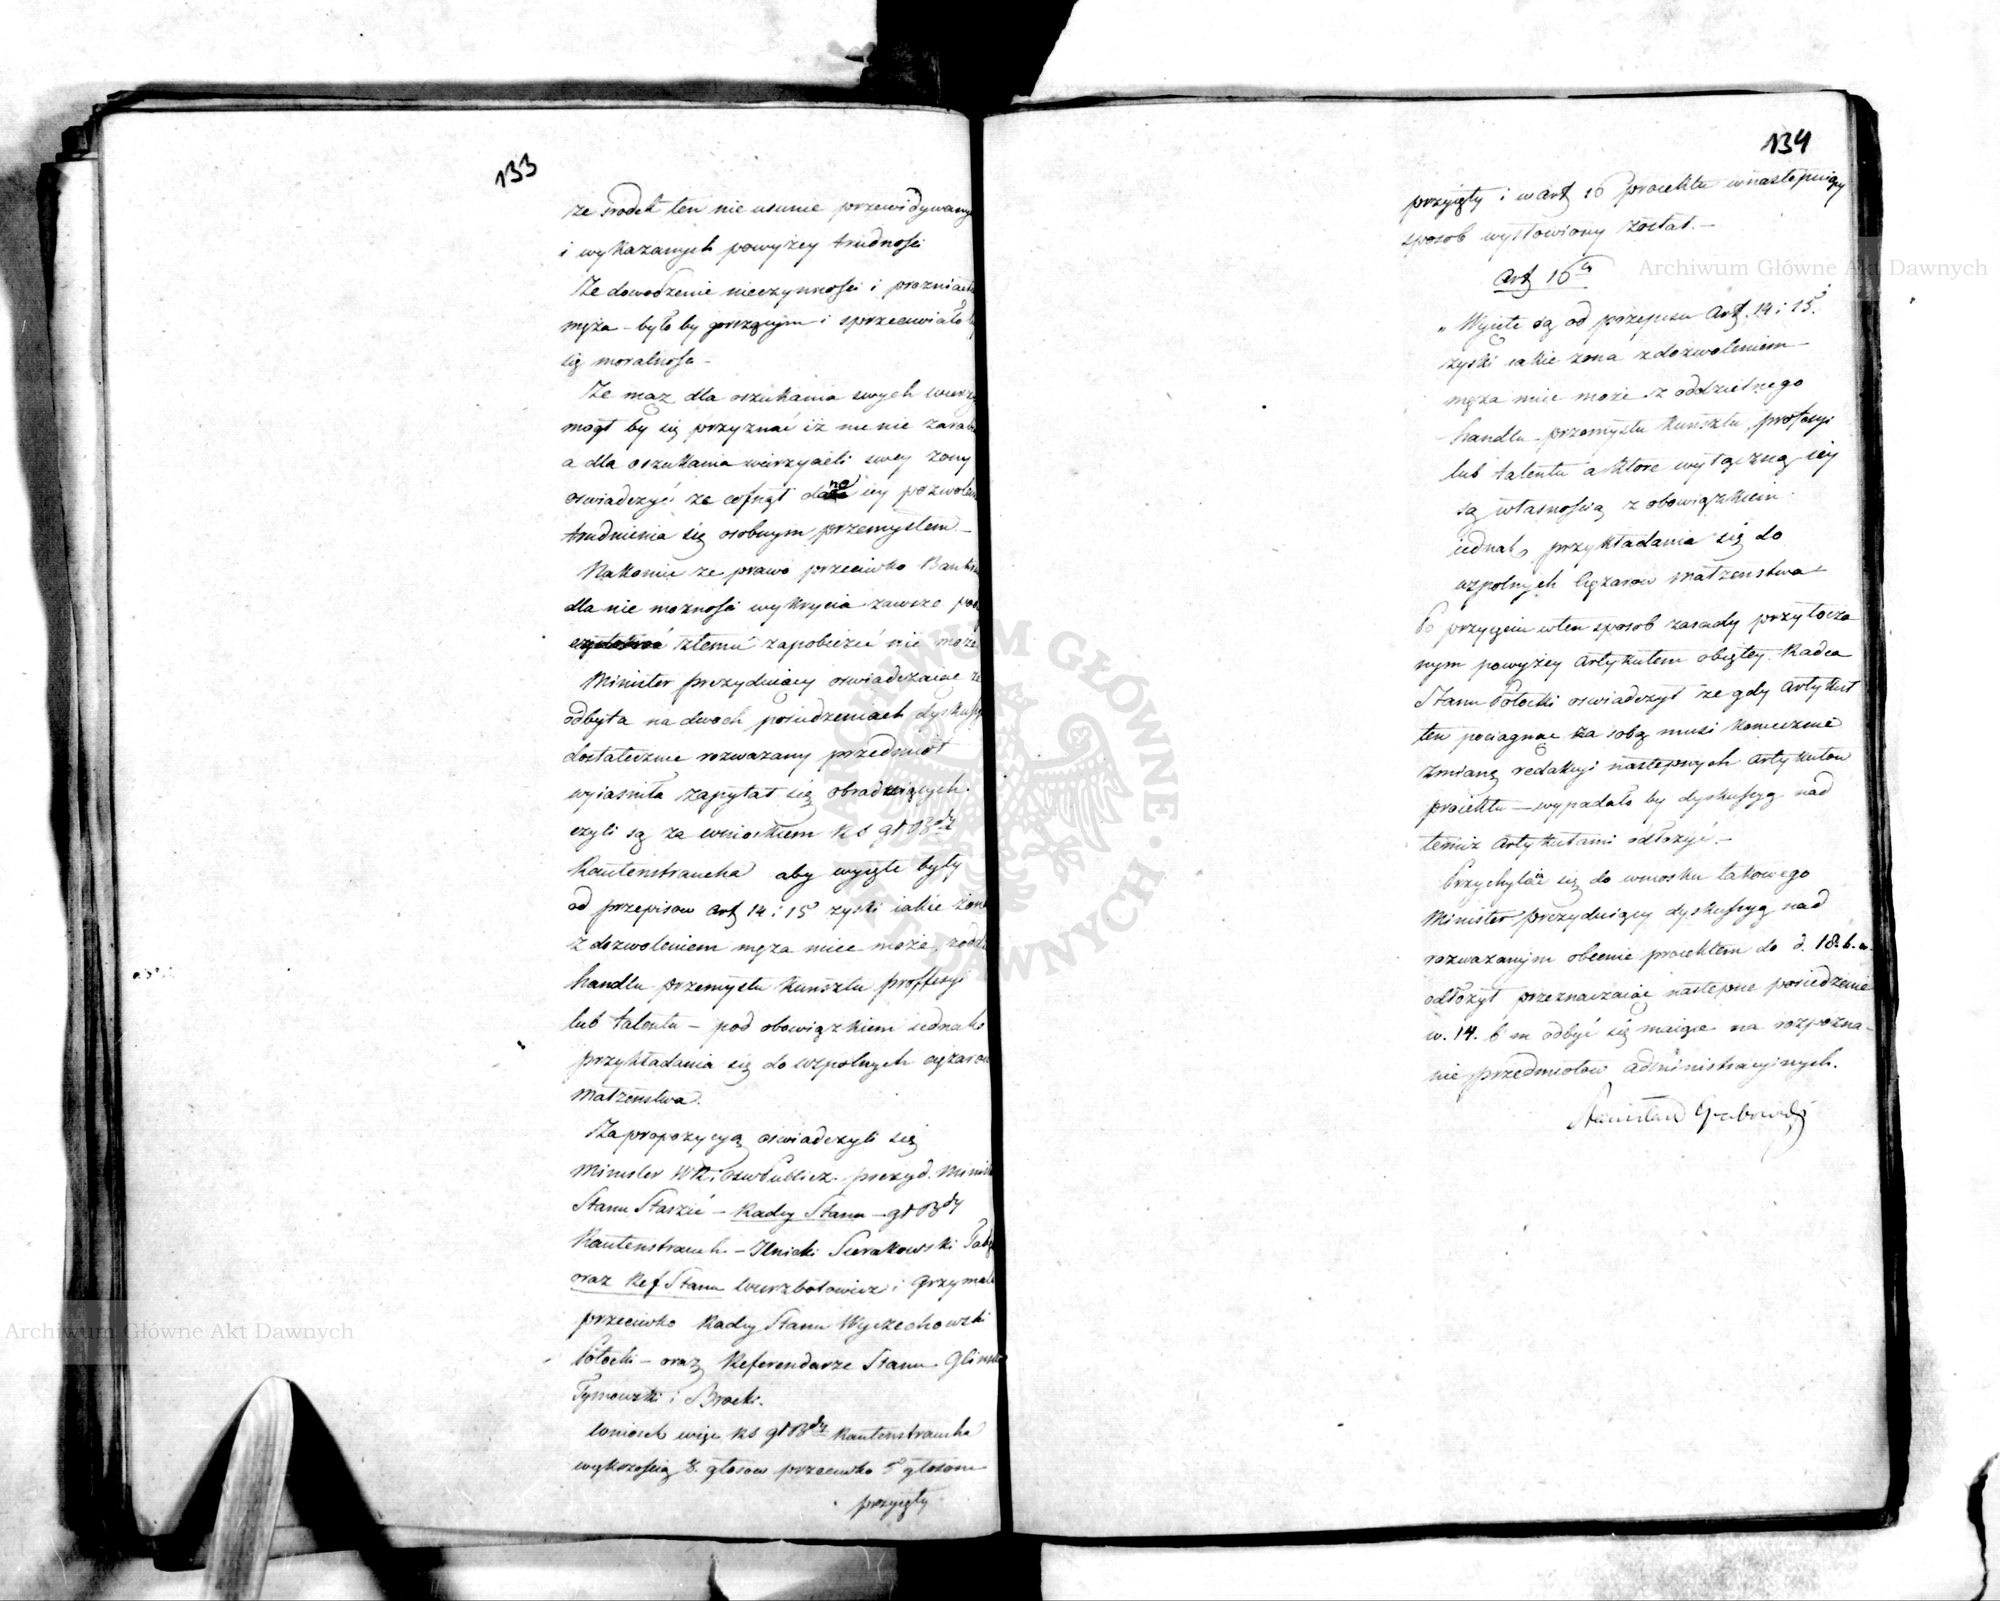 133
że srodek ten nie usunie przewidywany
i wykazanych powyżey trudnosci
Że dowodzenie nieczynności i prozniact
męża – było by gorszącym i sprzeciwiało b
się moralnosci –
Że mąz dla oszukania swych wierzy
mogł by się przyznać iż nie nie zarab
a dla oszukania wierzycieli swey zony
oswiadczyć ze cofnął dane iey pozwolen
trudnienia się osobnym przemysłem –
Nakoniec ze prawo przeciwko Bank
dla nie mozności wykrycia zawsze pod
złemu zapobiedz nie moze
Minister prezyduiący oswiadczaiąc ze
odbyta na dwoch posiedzeniach dyskussya
dostatecznie rozwazany przedmiot
wyiasniła zapytał się obraduiących.
czyli są za wnioskiem KS gł Bdy
Rautenstraucha aby wyięte były
od przepisow Art 14 i 15 zyski iakie żona
z dozwoleniem męża miec może, z odd
handlu przemysłu kunsztu proffessyi
lub talentu – pod obowiązkiem iednak
przykładania się do wspolnych cięzarow
małzenstwa.
Za propozycyą oswiadczyli się
Minister WR. i Osw Publicz. prezyd. Minist
Stanu Staszic – Radcy Stanu – gł Bdy
Rautenstrauch – Ilnicki Sierakowski Tab
oraz Ref Stanu Wierzbołowicz i Grzymał
przeciwko Radcy Stanu Wyczechowski
Potocki – oraz Referendarze Stanu Glinsk
Tymowski i Brocki.
Wniosek więc KS gł Bdy Rautenstraucha
większością 8. głosow przeciwko 5 głosom
przyięty
134
przyięty i w Art 16 proiektu w następuiący
sposob wysłowiony został. –
Art 16ty
„ Wyięte są od przepisu Art. 14 i 15.
zyski iakie zona z dozwoleniem
męża miec może z oddzielnego
handlu przemysłu kunsztu, profesyi
lub talentu a ktore wyłączną iey
są własnością z obowiązkiem
iednak przykładania się do
wspolnych Cięzarow małzenstwa –
Po przyięciu w ten sposob zasady przytoczo
nym powyżey Artykułem obiętey. Radca
Stanu Potocki oswiadczył ze gdy Artykuł
ten pociagnac za sobą musi koniecznie
zmianę redakcyi następnych Artykułow
proiektu – wypadało by dyskussyą nad
temiz Artykułami odłożyć. –
Przychylaiąc się do wniosku takowego
Minister prezyduiący dyskussyą nad
rozwazanym obecnie proiektem do d. 18. b. m.
odłożył przeznaczaiąc następne posiedzenie
w. 14. b m odbyć się maiące na rozpozna-
nie przedmiotow administracyinych.
Stanisław Grabowski
Archiwum Główne Akt Dawnych
Archiwum Główne Akt Dawnych
ARCHIWUM GŁÓWNE AKT DAWNYCH